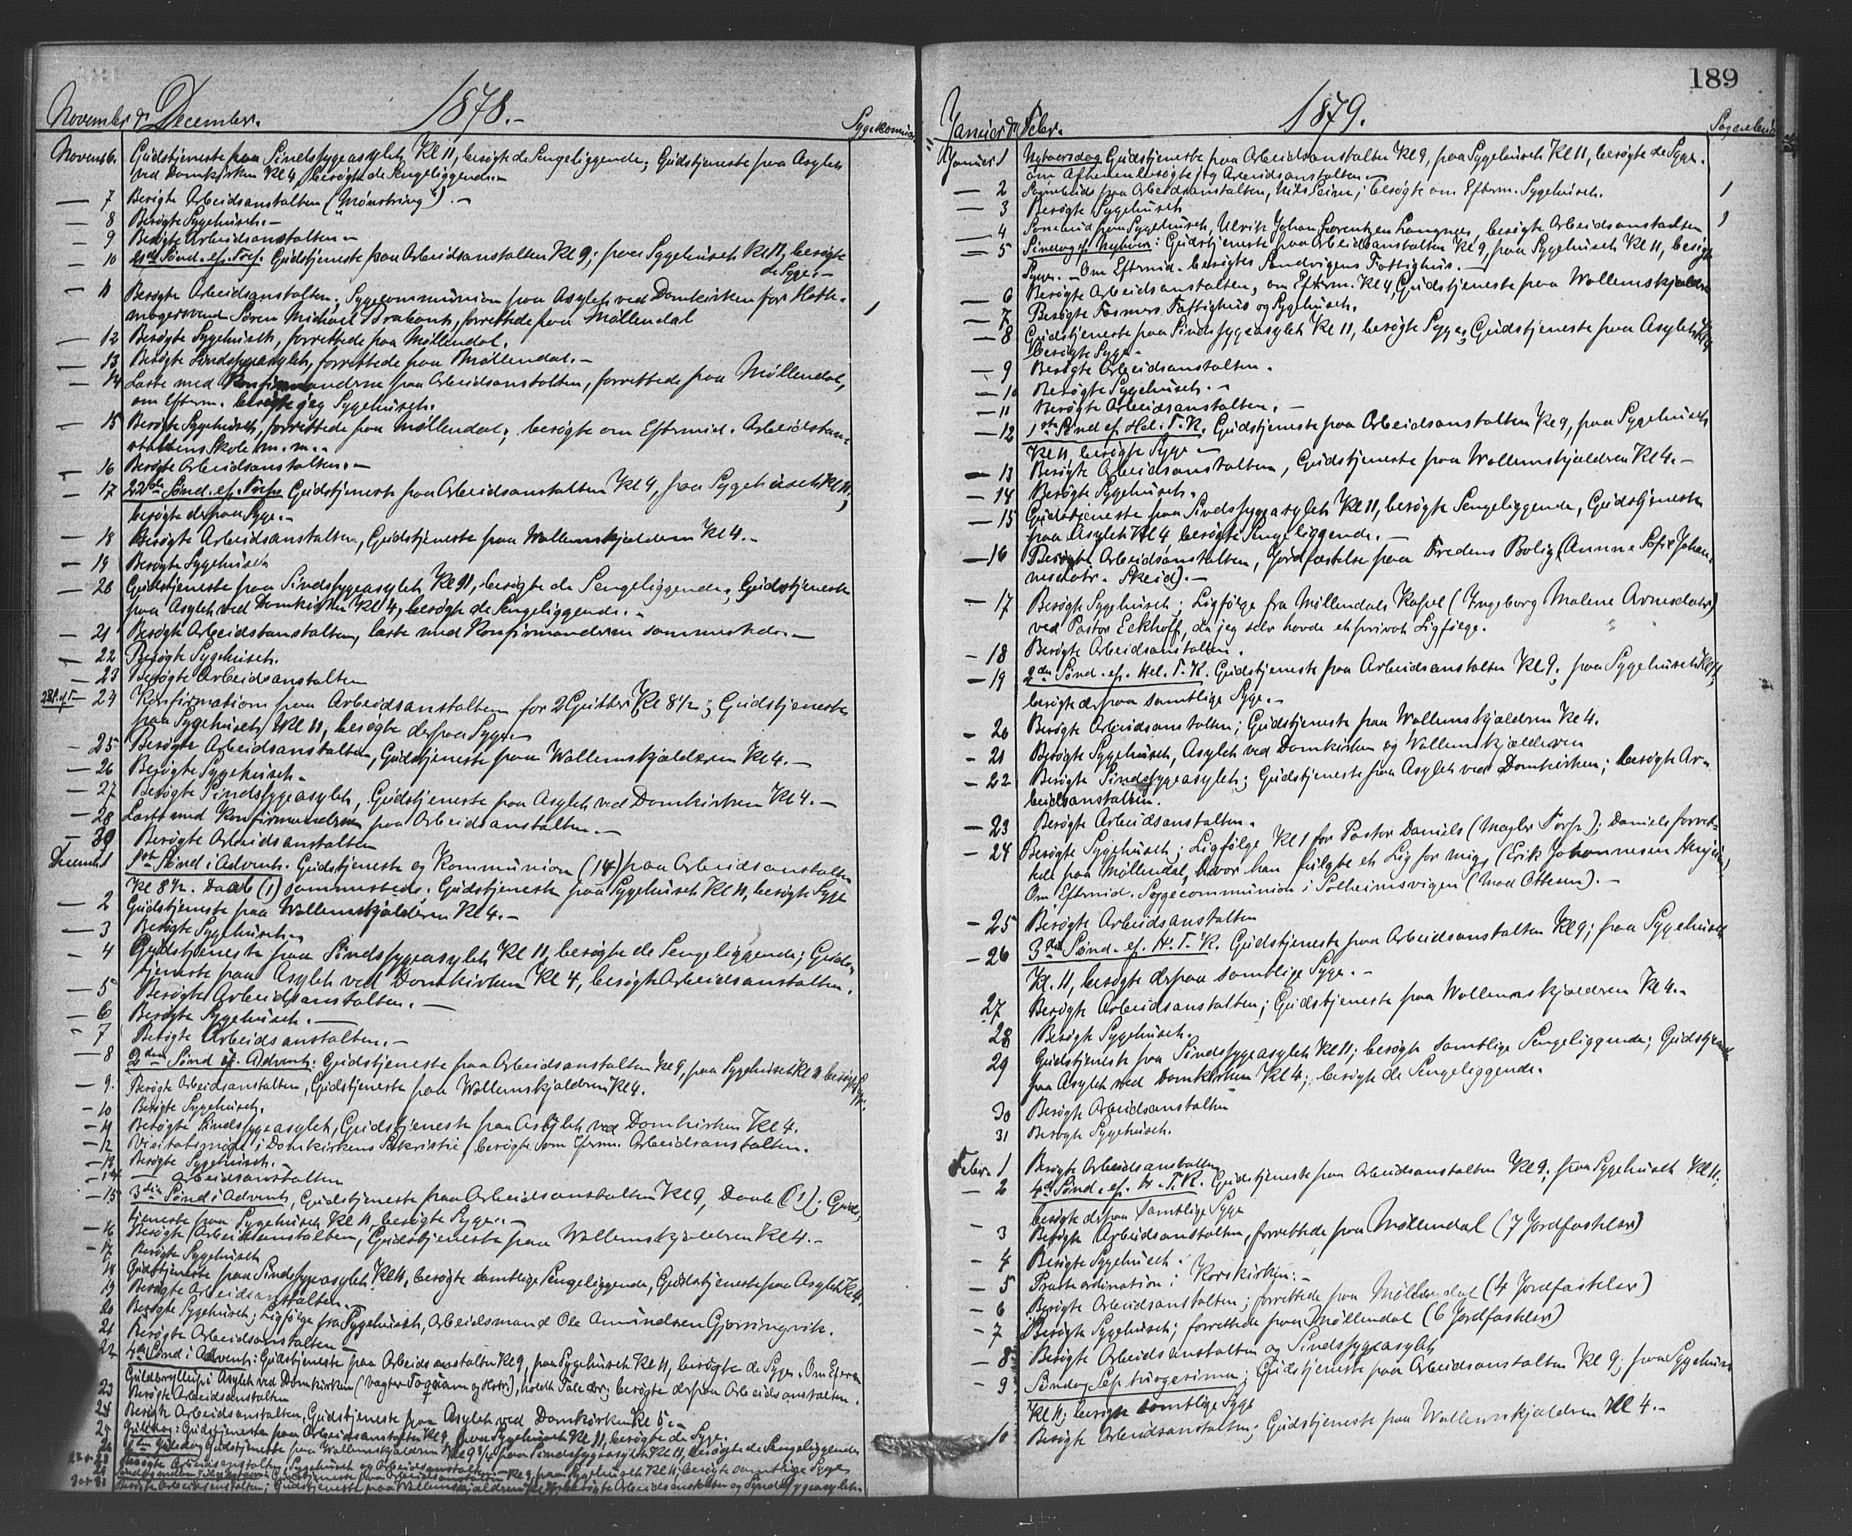 November & December.
1878.-
Novemb. Gudstjeneste paa Sindssygeasylet Kl 11, besøgte de Sengeliggende; Gudstjeneste paa Asylet
ved Domkirken Kl 4, besøgte de Sengeliggende.-
— 7 Besøgte Arbeidsanstalten (Mønstring). -
— 8 Besøgte Sygehuset.-
— 9 Besøgte Arbeidsanstalten.-
— 10 21de Sønd. ef. Tref. Gudstjeneste paa Arbeidsanstalten Kl 9; paa Sygehuset Kl 11, besøgte
de Syge.-
— 11 Besøgte Arbeidsanstalten. Sygecommunion paa Asylet ved Domkirken for
Søren Michael Brabant, forrettede paa Møllendal 1
— 12 Besøgte Sygehuset, forrettede paa Møllendal.
— 13 Besøgte Sindssygeasylet, forrettede paa Møllendal.-
— 14 Læste med Konfirmanderne paa Arbeidsanstalten, forrettede paa Møllendal,
om Efterm. besøgte jeg Sygehuset.
— 15 Besøgte Sygehuset, forrettede paa Møllendal; besøgte om Eftermid. Arbeidsan-
staltens Skole m.m.-
— 16 Besøgte Arbeidsanstalten.-
— 17 22de Sønd. ef. Tref. Gudstjeneste paa Arbeidsanstalten Kl 9, paa Sygehuset Kl 11,
besøgte derpaa Syge.-
— 18 Besøgte Arbeidsanstalten, Gudstjeneste paa Wollemskjælderen Kl 4.-
— 19 Besøgte Sygehuset
— 20 Gudstjeneste paa Sindssygeasylet Kl 11, besøgte de Sengeliggende, Gudstjeneste
paa Asylet ved Domkirken Kl 4, besøgte de Sengeliggende.-
— 21 Besøgte Arbeidsanstalten, læste med Konfirmanderne sammesteds.-
— 22 Besøgte Sygehuset.
— 23 Besøgte Arbeidsanstalten
24 Konfirmation paa Arbeidsanstalten for 2 Gutter Kl 8½; Gudstjeneste
paa Sygehuset Kl 11, besøgte derpaa Syge.-
— 25 Besøgte Arbeidsanstalten, Gudstjeneste paa Wollemskjælderen Kl 4.-
— 26 Besøgte Sygehuset.
— 27 Besøgte Sindssygeasylet, Gudstjeneste paa Asylet ved Domkirken Kl 4.-
— 28 Læste med Konfirmanderne paa Arbeidsanstalten.-
— 30 Besøgte Arbeidsanstalten
Decemb. 1 1ste Sønd. i Advent. Gudstjeneste og Kommunion (14) paa Arbeidsanstalten
Kl 8½. Daab (1) sammesteds. Gudstjeneste paa Sygehuset Kl 11, besøgte Syge
— 2 Gudstjeneste paa Wollemskjælderen Kl 4.-
— 3 Besøgte Sygehuset.
— 4 Gudstjeneste paa Sindssygeasylet Kl 11, besøgte de Sengeliggende; Guds-
tjeneste paa Asylet ved Domkirken Kl 4, besøgte Arbeidsanstalten.
— 5 Besøgte Arbeidsanstalten.-
— 6 Besøgte Sygehuset.-
— 7 Besøgte Arbeidsanstalten.-
— 8 2den Sønd. ef. Advent: Gudstjeneste paa Arbeidsanstalten Kl 9, paa Sygehuset Kl 11, besøgte Syge.
— 9. Besøgte Arbeidsanstalten, Gudstjeneste paa Wollemskjælderen Kl 4.
— 10 Besøgte Sygehuset.
— 11 Besøgte Sindssygeasylet, Gudstjeneste paa Asylet ved Domkirken Kl 4.
— 12 Visitatsmøde i Domkirkens Sakristie, besøgte om Efterm. Arbeidsanstalten.
— 13 Besøgte Sygehuset.-
— 14 — Arbeidsanstalten
— 15 3die Sønd i Advent, Gudstjeneste paa Arbeidsanstalten Kl 9, Daab (1); Guds-
tjeneste paa Sygehuset Kl 11, besøgte Syge.-
— 16 Besøgte Arbeidsanstalten, Gudstjeneste paa Wollemskjælderen Kl 4.-
— 17 Besøgte Sygehuset
18 Gudstjeneste paa Sindssygeasylet Kl 11, besøgte samtlige Sengeliggende, Gudstjeneste paa Asylet Kl 4.
19 Besøgte Arbeidsanstalten.
20 Besøgte Sygehuset; Ligfølge fra Sygehuset, Arbeidsmand Ole Amundsen Gjerringvik.
21 Besøgte Arbeidsanstalten -
22 4de Sønd i Advent: Gudstjeneste paa Arbeidsanstalten Kl 9, paa Sygehuset Kl 11, besøgte de Syge. Om Efterm
i Asylet ved Domkirken holdt Tale der; besøgte derpaa Arbeidsanstalten.
23 Besøgte Arbeidsanstalten
24 Besøgte Arbeidsanstalten, Gudstjeneste paa Asylet ved Domkirken Kl 5.-
25 Juledag: Gudstjeneste paa Arbeidsanstalten Kl 9, paa Sygehuset Kl 11, besøgte de Syge.
Gudstjeneste paa Wollemskjælderen paa Sindssygeasylet Kl 11, besøgte de Sengeliggende
Besøgte Arbeidsanstalten, Sygehuset og Arbeidsanstalten
Gudstjeneste paa Arbeidsanstalten Kl 9, paa Sygehuset Kl 11, besøgte samtlige Syge
Besøgte Arbeidsanstalten; Gudstjeneste paa Wollemskjælderen besøgte Arbeidsanstalten og Sindssygeasylet.
189
Januar & Febr.
1879.
Januar 1 Nytaarsdag Gudstjeneste paa Arbeidsanstalten Kl 9, paa Sygehuset Kl 11, besøgte de Syge.
om Aftenen besøgte jeg Arbeidsanstalten.-
— 2 Sognebud paa Arbeidsanstalten, besøgte om Efterm. Sygehuset. 1
— 3 Besøgte Sygehuset
— 4 Sognebud paa Sygehuset, Ulrik Johan Lorentzen besøgte Arbeidsanstalten 1
— 5 Søndag ef. Nytaar: Gudstjeneste paa Arbeidsanstalten Kl 9, paa Sygehuset Kl 11, besøgte
Syge. - Om Eftermid. besøgtes Sandvigens Fattighus.-
— 6 Besøgte Arbeidsanstalten, om Efterm. Kl 4, Gudstjeneste paa Wollemskjælderen
— 7 Besøgte Fasmers Fattighus og Sygehuset.
— 8 Gudstjeneste paa Sindssygeasylet Kl 11, besøgte Syge; Gudstjeneste paa Asylet Kl 4,
besøgte Syge.
— 9 Besøgte Arbeidsanstalten.
— 10 Besøgte Sygehuset.-
— 11 Besøgte Arbeidsanstalten.-
— 12 1ste Sønd ef. Hel. T. K. Gudstjeneste paa Arbeidsanstalten Kl 9, paa Sygehuset
Kl 11, besøgte Syge.-
— 13 Besøgte Arbeidsanstalten, Gudstjeneste paa Wollemskjælderen Kl 4.-
— 14 Besøgte Sygehuset.
— 15 Gudstjeneste paa Sindssygeasylet Kl 11, besøgte Sengeliggende, Gudstjeneste
paa Asylet Kl 4 besøgte Sengeliggende.-
— 16 Besøgte Arbeidsanstalten, Jordfæstelse paa Fredens Bolig (Anne Sofie Johan-
nesdatr. Skeid).-
— 17 Besøgte Sygehuset; Ligfølge fra Møllendals Kapel (Ingeborg Malene Arnesdatr)
ved Pastor Eckhoff, da jeg selv havde et privat Ligfølge.
— 18 Besøgte Arbeidsanstalten.
— 19 2den Sønd. ef. Hel. T. K. Gudstjeneste paa Arbeidsanstalten Kl 9; paa Sygehuset Kl 11,
besøgte derpaa samtlige Syge.-
— 20 Besøgte Arbeidsanstalten; Gudstjeneste paa Wollemskjælderen Kl 4.
— 21 Besøgte Sygehuset, Asylet ved Domkirken og Wollemskjælderen
— 22 Besøgte Sindssygeasylet; Gudstjeneste paa Asylet ved Domkirken; besøgte Ar-
beidsanstalten.
— 23 Besøgte Arbeidsanstalten.
— 24 Besøgte Sygehuset; Ligfølge Kl 1 for Pastor Daniels; Daniels forret-
tede paa Møllendal, hvor han fulgte et Lig for mig (Erik Johannesen
Om Eftermid. Sygecommunion i Solheimsvigen (Mad Ottesen).-
— 25 Besøgte Arbeidsanstalten
— 26 3die Sønd. ef. H. T. K. Gudstjeneste paa Arbeidsanstalten Kl 9; paa Sygehuset
Kl. 11, besøgte derpaa samtlige Syge.-
27 Besøgte Arbeidsanstalten; Gudstjeneste paa Wollemskjælderen Kl 4.-
28 Besøgte Sygehuset.
29 Gudstjeneste paa Sindssygeasylet Kl 11; besøgte samtlige Sengeliggende; Gudstjeneste
paa Asylet ved Domkirken Kl 4; besøgte de Sengeliggende.
30 Besøgte Arbeidsanstalten
31 Besøgte Sygehuset.
Febr. 1 Besøgte Arbeidsanstalten
— 2 4de Sønd. ef. H. T. K. Gudstjeneste paa Arbeidsanstalten Kl 9; paa Sygehuset Kl 11,
besøgte derpaa samtlige Syge
— 3 Besøgte Arbeidsanstalten, forrettede paa Møllendal (7 Jordfæstelser)
— 4 Besøgte Sygehuset.
— 5 Præsteordination i Korskirken.-
— 6 Besøgte Arbeidsanstalten; forrettede paa Møllendal (4 Jordfæstelser)
— 7 Besøgte Sygehuset; forrettede paa Møllendal (6 Jordfæstelser)
— 8 Besøgte Arbeidsanstalten og Sindssygeasylet
— 9 Søndag Septuagesima; Gudstjeneste paa Arbeidsanstalten Kl 9; paa Sygehuset
Kl 11; besøgte samtlige Syge
10 Besøgte Arbeidsanstalten; Gudstjeneste paa Wollemskjælderen Kl 4.-